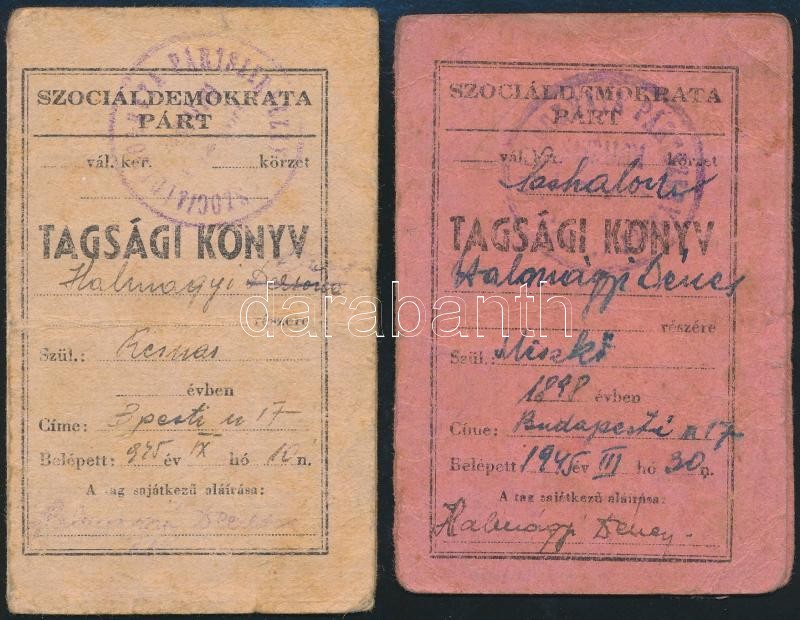 SZOCIÁLDEMOKRATA
PÁRT
vál. ker. körzet
TAGSÁGI KÖNYV
Halmagyi
részére
Szül.:
évben
Címe: Bpesti u 17
Belépett: 945 év IX hó 10 n.
A tag sajátkezű aláírása:
SZOCIÁLDEMOKRATA
PÁRT
vál. ker. körzet
Sashalom
TAGSÁGI KÖNYV
Halmágyi Dénes
részére
Szül.: Miske
1898 évben
Címe: Budapesti u 17
Belépett 1945 év III hó 30 n.
A tag sajátkezű aláírása:
Halmágyi Dénes
darabanth